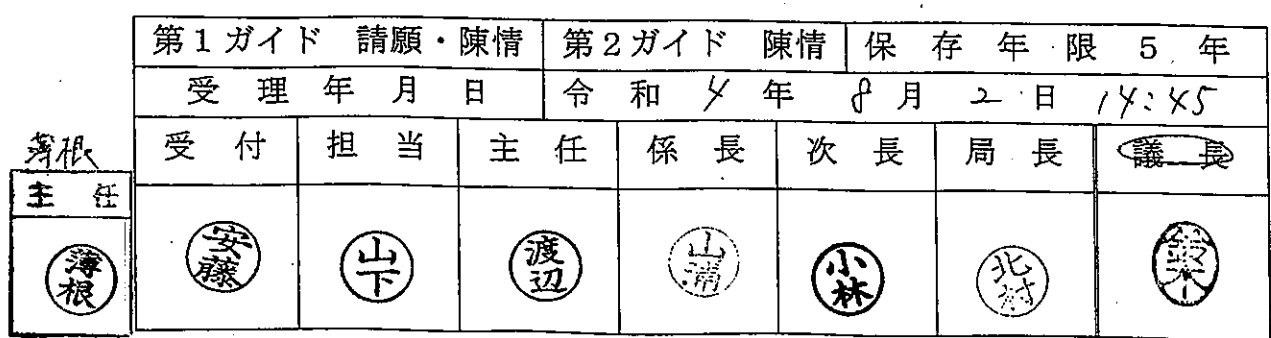 第1ガイド 請願・陳情 第2ガイド 陳情 保存年限5年
受理年月日 令和4年8月2日 14:45
薄根 受付 担当 主任 係長 次長 局長 議長
主任
薄根 安藤 山下 渡辺 山浦 小林 北村 鈴木